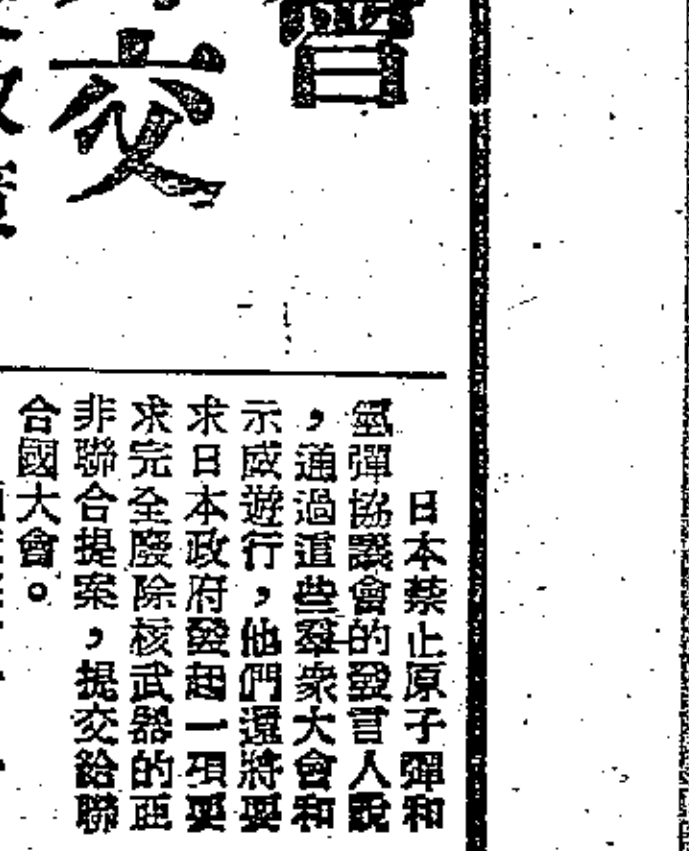 會
交
日本禁止原子彈和
氫彈協議會的發言人說
，通過這些羣衆大會和
示威遊行，他們還將要
求日本政府發起一項要
求完全廢除核武器的亞
非聯合提案，提交給聯
合國大會。